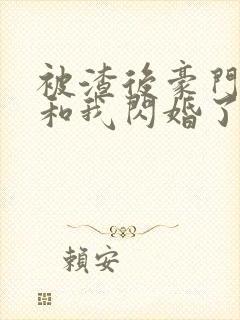 被渣後豪門
和我閃婚了
賴安